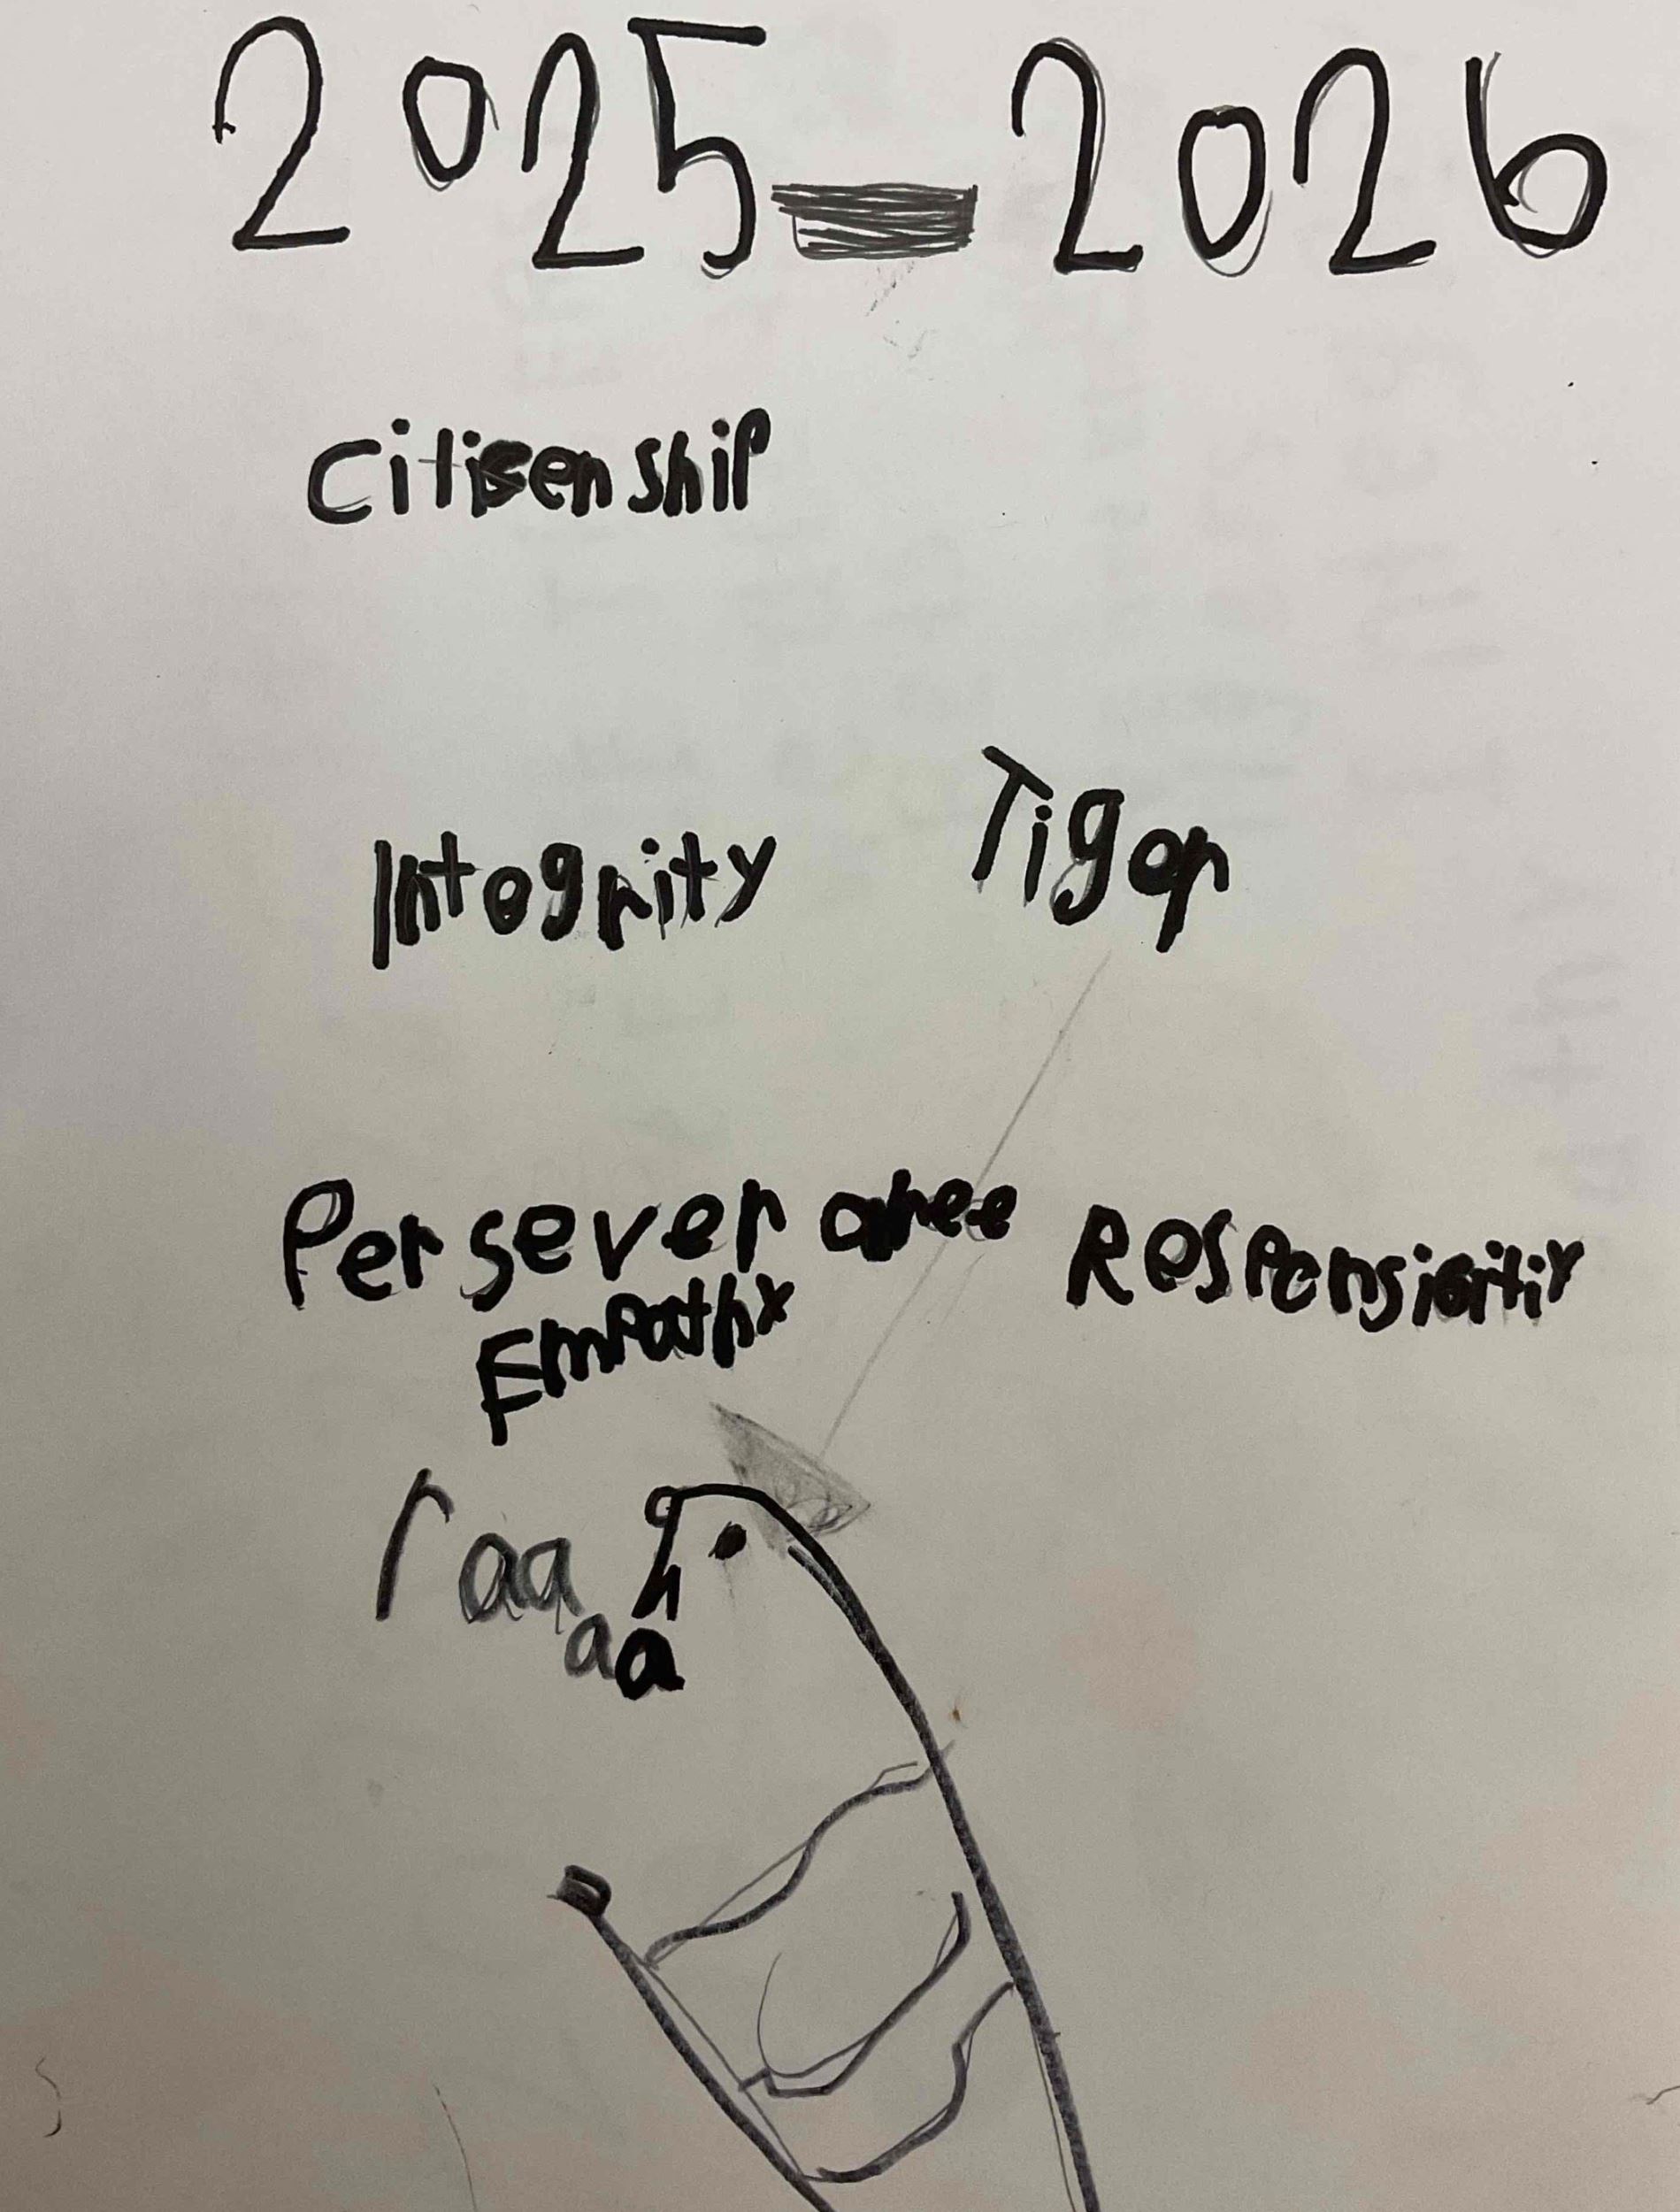 2025-2026
Citisenship
Integrity
Tiger
Perseverance
Empathy
raa
aa